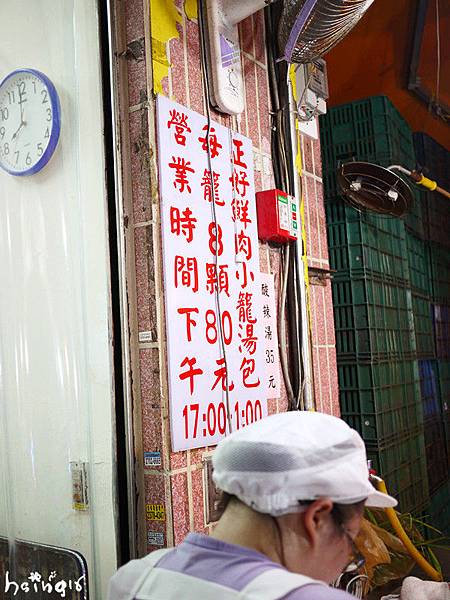 正好鮮肉小籠湯包
每籠8顆80元
營業時間下午
17:00
1:00
酸辣湯35元
hsing18